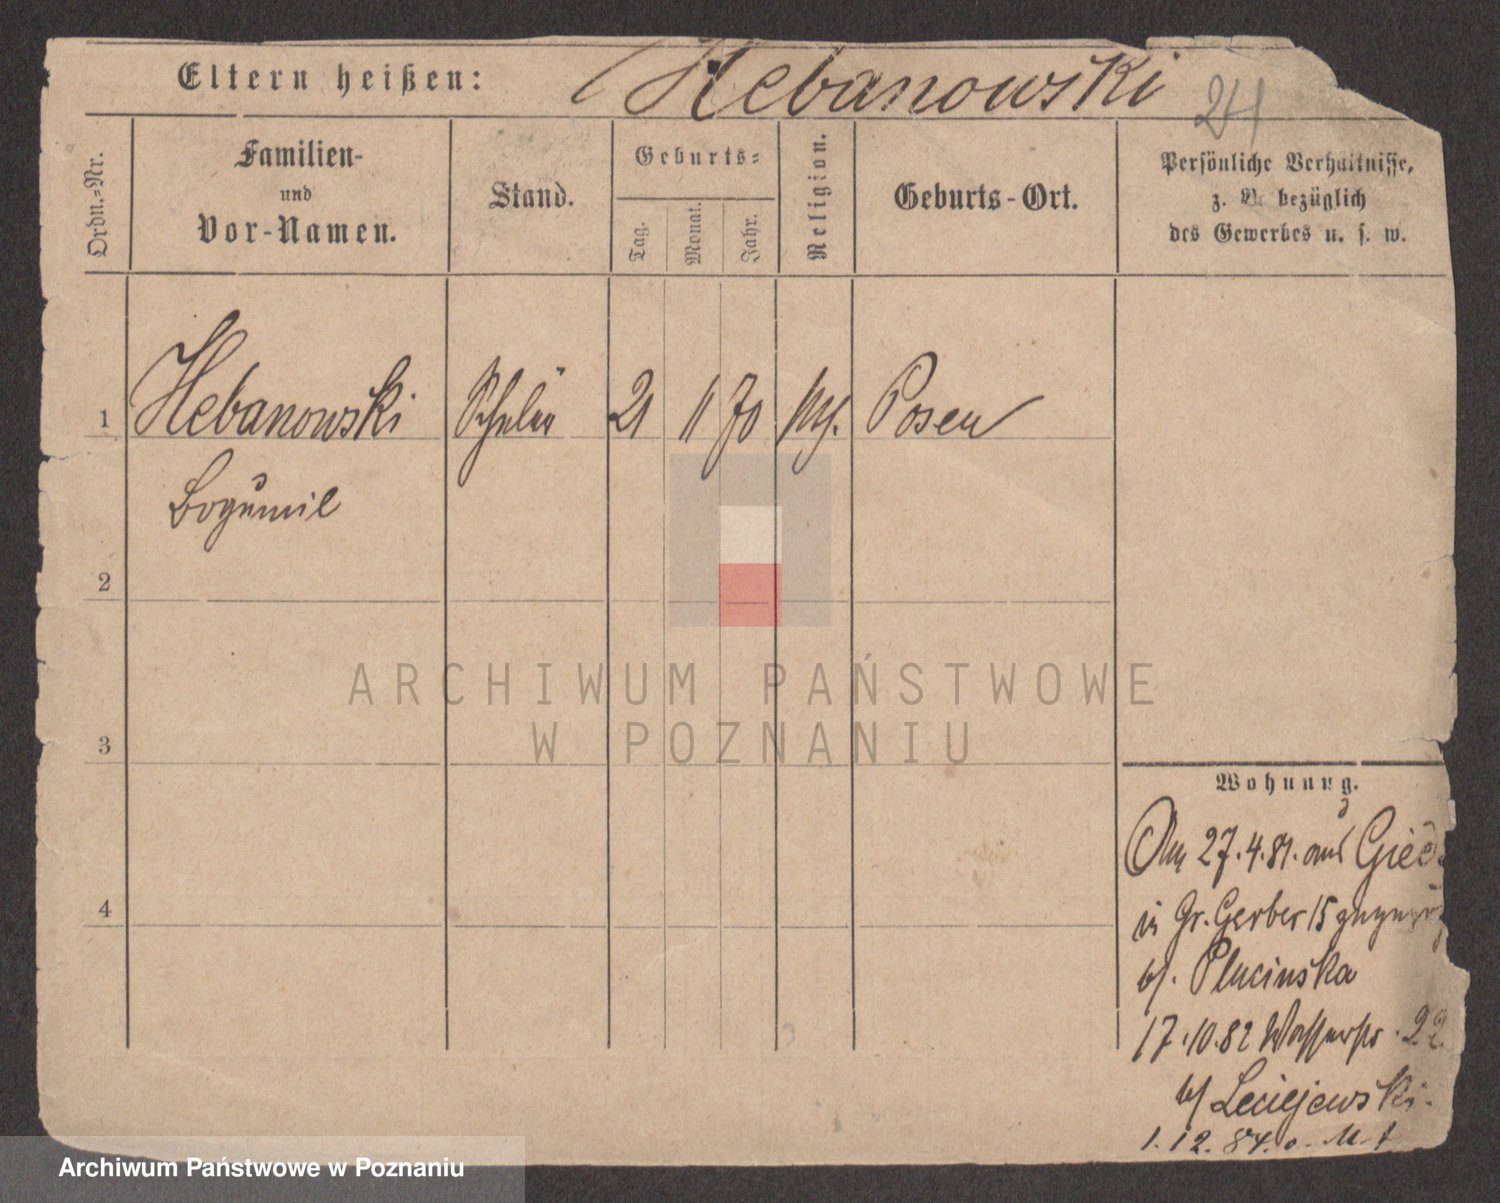 Eltern heißen: Hebanowski
24
Ordn.-Nr.
Familien-
und
Vor-Namen.
Stand.
Geburts-
Tag.
Monat.
Jahr.
Religion.
Geburts-Ort.
Persönliche Verhältnisse,
z. B. bezüglich
des Gewerbes u. s. w.
1 Hebanowski Schüler 21 11 70 Posen
Bogumil
2
3
4
ARCHIWUM PAŃSTWOWE
W POZNANIU
Wohnung.
Am 27.4.81. aus
in Gr. Gerber 15
b/. Plucinska
17.10.82 Wasserstr. 22
b/ Leciejewski.
1.12.84.
Archiwum Państwowe w Poznaniu